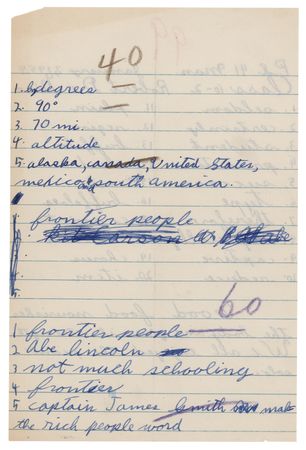 40
1. degrees
2. 90°
3. 70 mi.
4. altitude
5. alaska, canada, United States,
mexico and south america.
1. frontier people
2. Kit Carson
3.
4.
5.
60
1 frontier people
2 abe lincoln
3 not much schooling
4 frontier
5 captain James Smith make
the rich people word